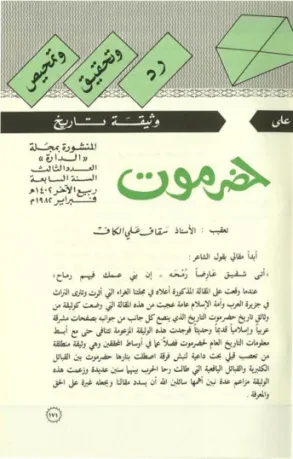 رد
وتحقيق
وتمحيص
على
وثيقة تاريخ
حضرموت
المنشورة بمجلة
«الدارة»
العدد الثالث
السنة السابعة
ربيع الآخر ١٤٠٢هـ
فبراير ١٩٨٢م
تعقيب : الأستاذ سقاف علي الكاف
أبدأ مقالي بقول الشاعر :
«أتى شقيق عارضاً رمحه ـ إن بني عمك فيهم رماح»
عندما وقعت على المقالة المذكورة أعلاه في مجلتنا الغراء التي أثرت وتثري التراث
في جزيرة العرب وأمة الإسلام عامة عجبت من هذه المقالة التي وضعت كوثيقة من
وثائق تاريخ حضرموت التاريخ الذي ينصع كل جانب من جوانبه بصفحات مشرقة
عربياً وإسلامياً قديماً وحديثاً فوجدت هذه الوثيقة المزعومة تتنافى حتى مع أبسط
معلومات التاريخ العام لحضرموت فضلاً عما في أوساط المحققين وهي وثيقة منطلقة
من تعصب قبلي بحت داعية لنبش فرقة اصطلت بنارها حضرموت بين القبائل
الكثيرية والقبائل اليافعية التي طالت رحا الحرب بينها سنين عديدة وزعمت هذه
الوثيقة مزاعم عدة نبين أهمها سائلين الله أن يسدد مقالنا ويجعله غيرة على الحق
والمعرفة .